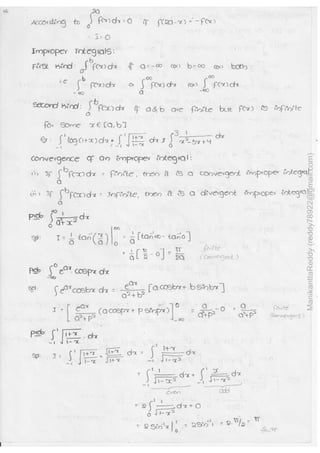 According to ∫₀^2a f(x) dx = 0 if f(2a-x) = -f(x)
∴ I = 0
Improper Integrals:
First Kind: ∫ₐ^b f(x) dx if a = -∞ (or) b = ∞ (or) both
i.e ∫₋∞^b f(x) dx or ∫ₐ^∞ f(x) dx (or) ∫₋∞^∞ f(x) dx
Second Kind: ∫ₐ^b f(x) dx if a & b are finite but f(x) is infinite
for some x ∈ [a, b]
∫₋₁^1 √(1+x / 1-x) dx
convergence of an improper integral:
(i) If ∫ₐ^b f(x) dx = finite, then it is a convergent improper integral
(ii) If ∫ₐ^b f(x) dx = Infinite, then it is a divergent improper integral
Pob ∫₀^∞ 1/(a²+x²) dx
Sol: I = 1/a tan⁻¹(x/a) |₀^∞ = 1/a [tan⁻¹∞ - tan⁻¹0]
= 1/a [π/2 - 0] = π/2a finite (convergent)
Pob ∫₋∞^0 e^ax cos px dx
Sol: ∫ e^ax cos bx dx = e^ax/(a²+b²) [a cos bx + b sin bx]
I = [e^ax/(a²+p²) (a cos px + p sin px)]₋∞^0 = a/(a²+p²) - 0 = a/(a²+p²) finite (convergent)
Pob ∫₋₁^1 √(1+x / 1-x) dx
Sol: I = ∫₋₁^1 √(1+x)/√(1-x) × √(1+x)/√(1+x) dx = ∫₋₁^1 (1+x)/√(1-x²) dx
= ∫₋₁^1 1/√(1-x²) dx + ∫₋₁^1 x/√(1-x²) dx
Even Odd
= 2∫₀^1 1/√(1-x²) dx + 0
= 2 sin⁻¹x |₀^1 = 2 sin⁻¹1 = 2·π/2 = π finite
ManikantaReddy (reddy78922@gmail.com)